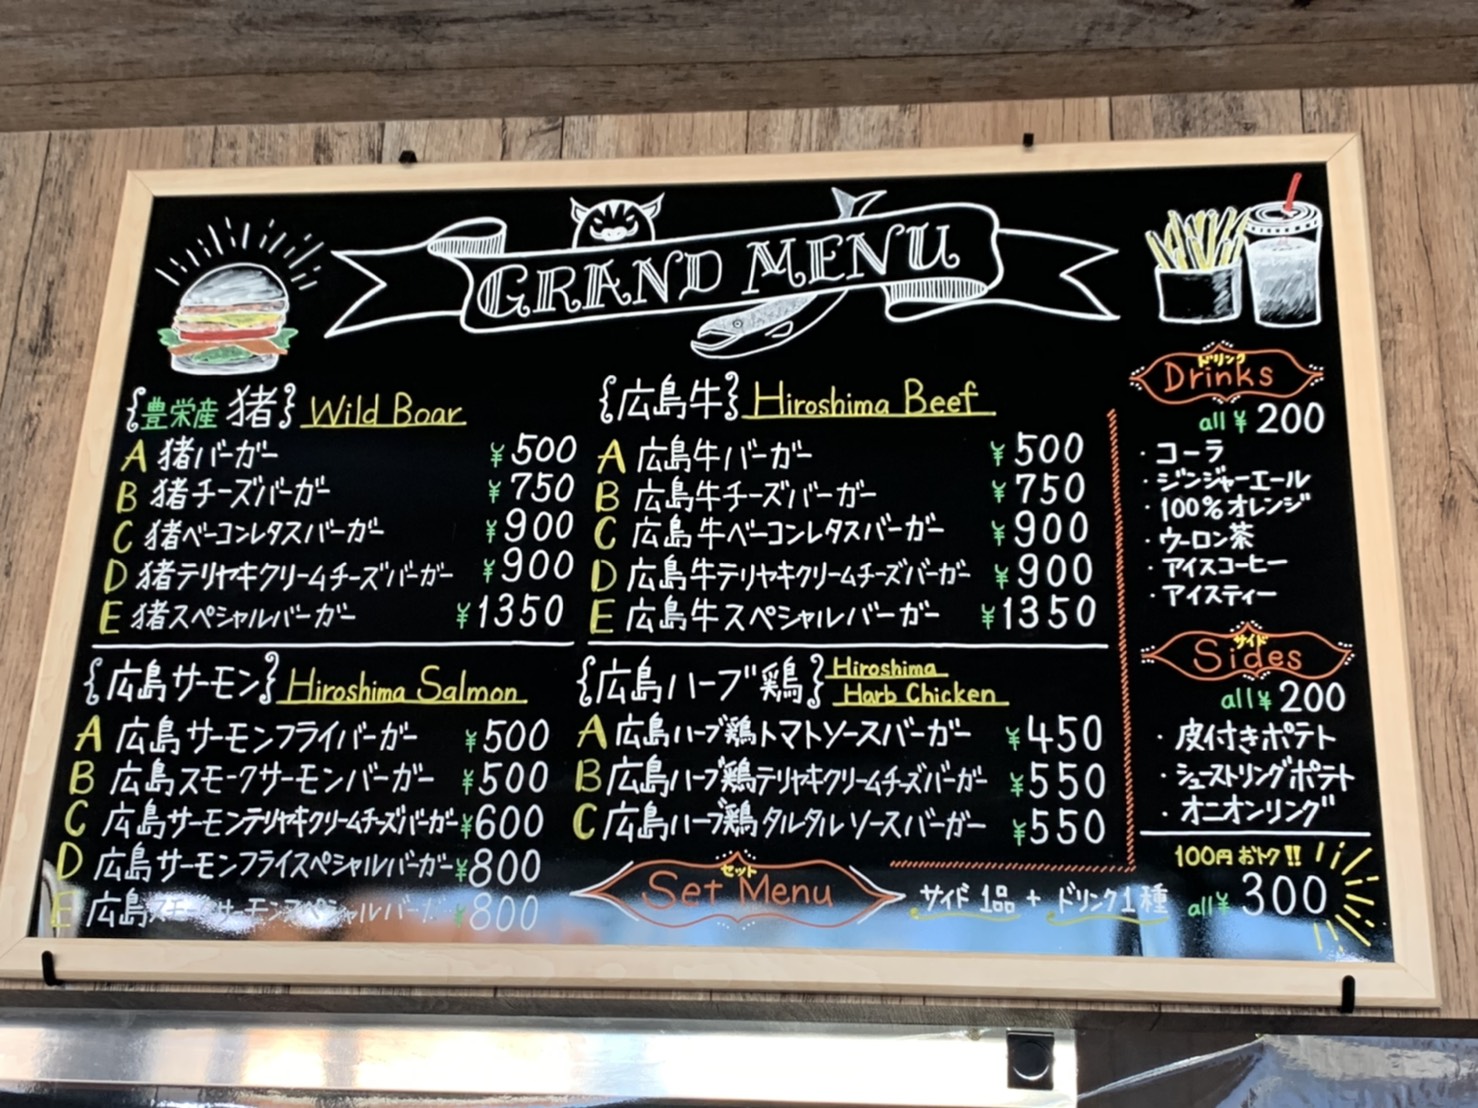 GRAND MENU
{豊栄産 猪} Wild Boar
A 猪バーガー ¥500
B 猪チーズバーガー ¥750
C 猪ベーコンレタスバーガー ¥900
D 猪テリヤキクリームチーズバーガー ¥900
E 猪スペシャルバーガー ¥1350
{広島牛} Hiroshima Beef
A 広島牛バーガー ¥500
B 広島牛チーズバーガー ¥750
C 広島牛ベーコンレタスバーガー ¥900
D 広島牛テリヤキクリームチーズバーガー ¥900
E 広島牛スペシャルバーガー ¥1350
{広島サーモン} Hiroshima Salmon
A 広島サーモンフライバーガー ¥500
B 広島スモークサーモンバーガー ¥500
C 広島サーモンテリヤキクリームチーズバーガー ¥600
D 広島サーモンフライスペシャルバーガー ¥800
E 広島スモークサーモンスペシャルバーガー ¥800
{広島ハーブ鶏} Hiroshima
Harb Chicken
A 広島ハーブ鶏トマトソースバーガー ¥450
B 広島ハーブ鶏テリヤキクリームチーズバーガー ¥550
C 広島ハーブ鶏タルタルソースバーガー ¥550
ドリンク
Drinks
all ¥200
・コーラ
・ジンジャーエール
・100%オレンジ
・ウーロン茶
・アイスコーヒー
・アイスティー
サイド
Sides
all ¥200
・皮付きポテト
・シューストリングポテト
・オニオンリング
セット
Set Menu
サイド1品 + ドリンク1種
100円おトク!!
all ¥300